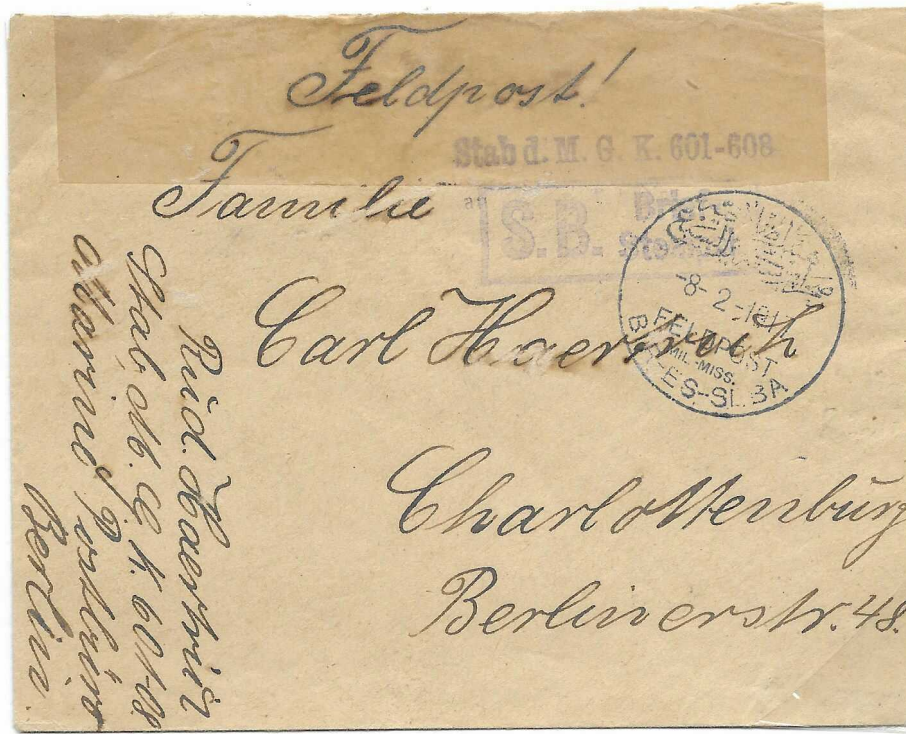 Feldpost!
Stab d. M. G. K. 601-608
S. B.
Familie
-8-2-1917
FELDPOST
MIL.-MISS.
BIR-ES-SI.BA
Carl Haertrich
Charlottenburg
Berlinerstr. 48.
Rud. Haertrich
Stab M. G. K. 601-08
Marine Postbüro
Berlin.